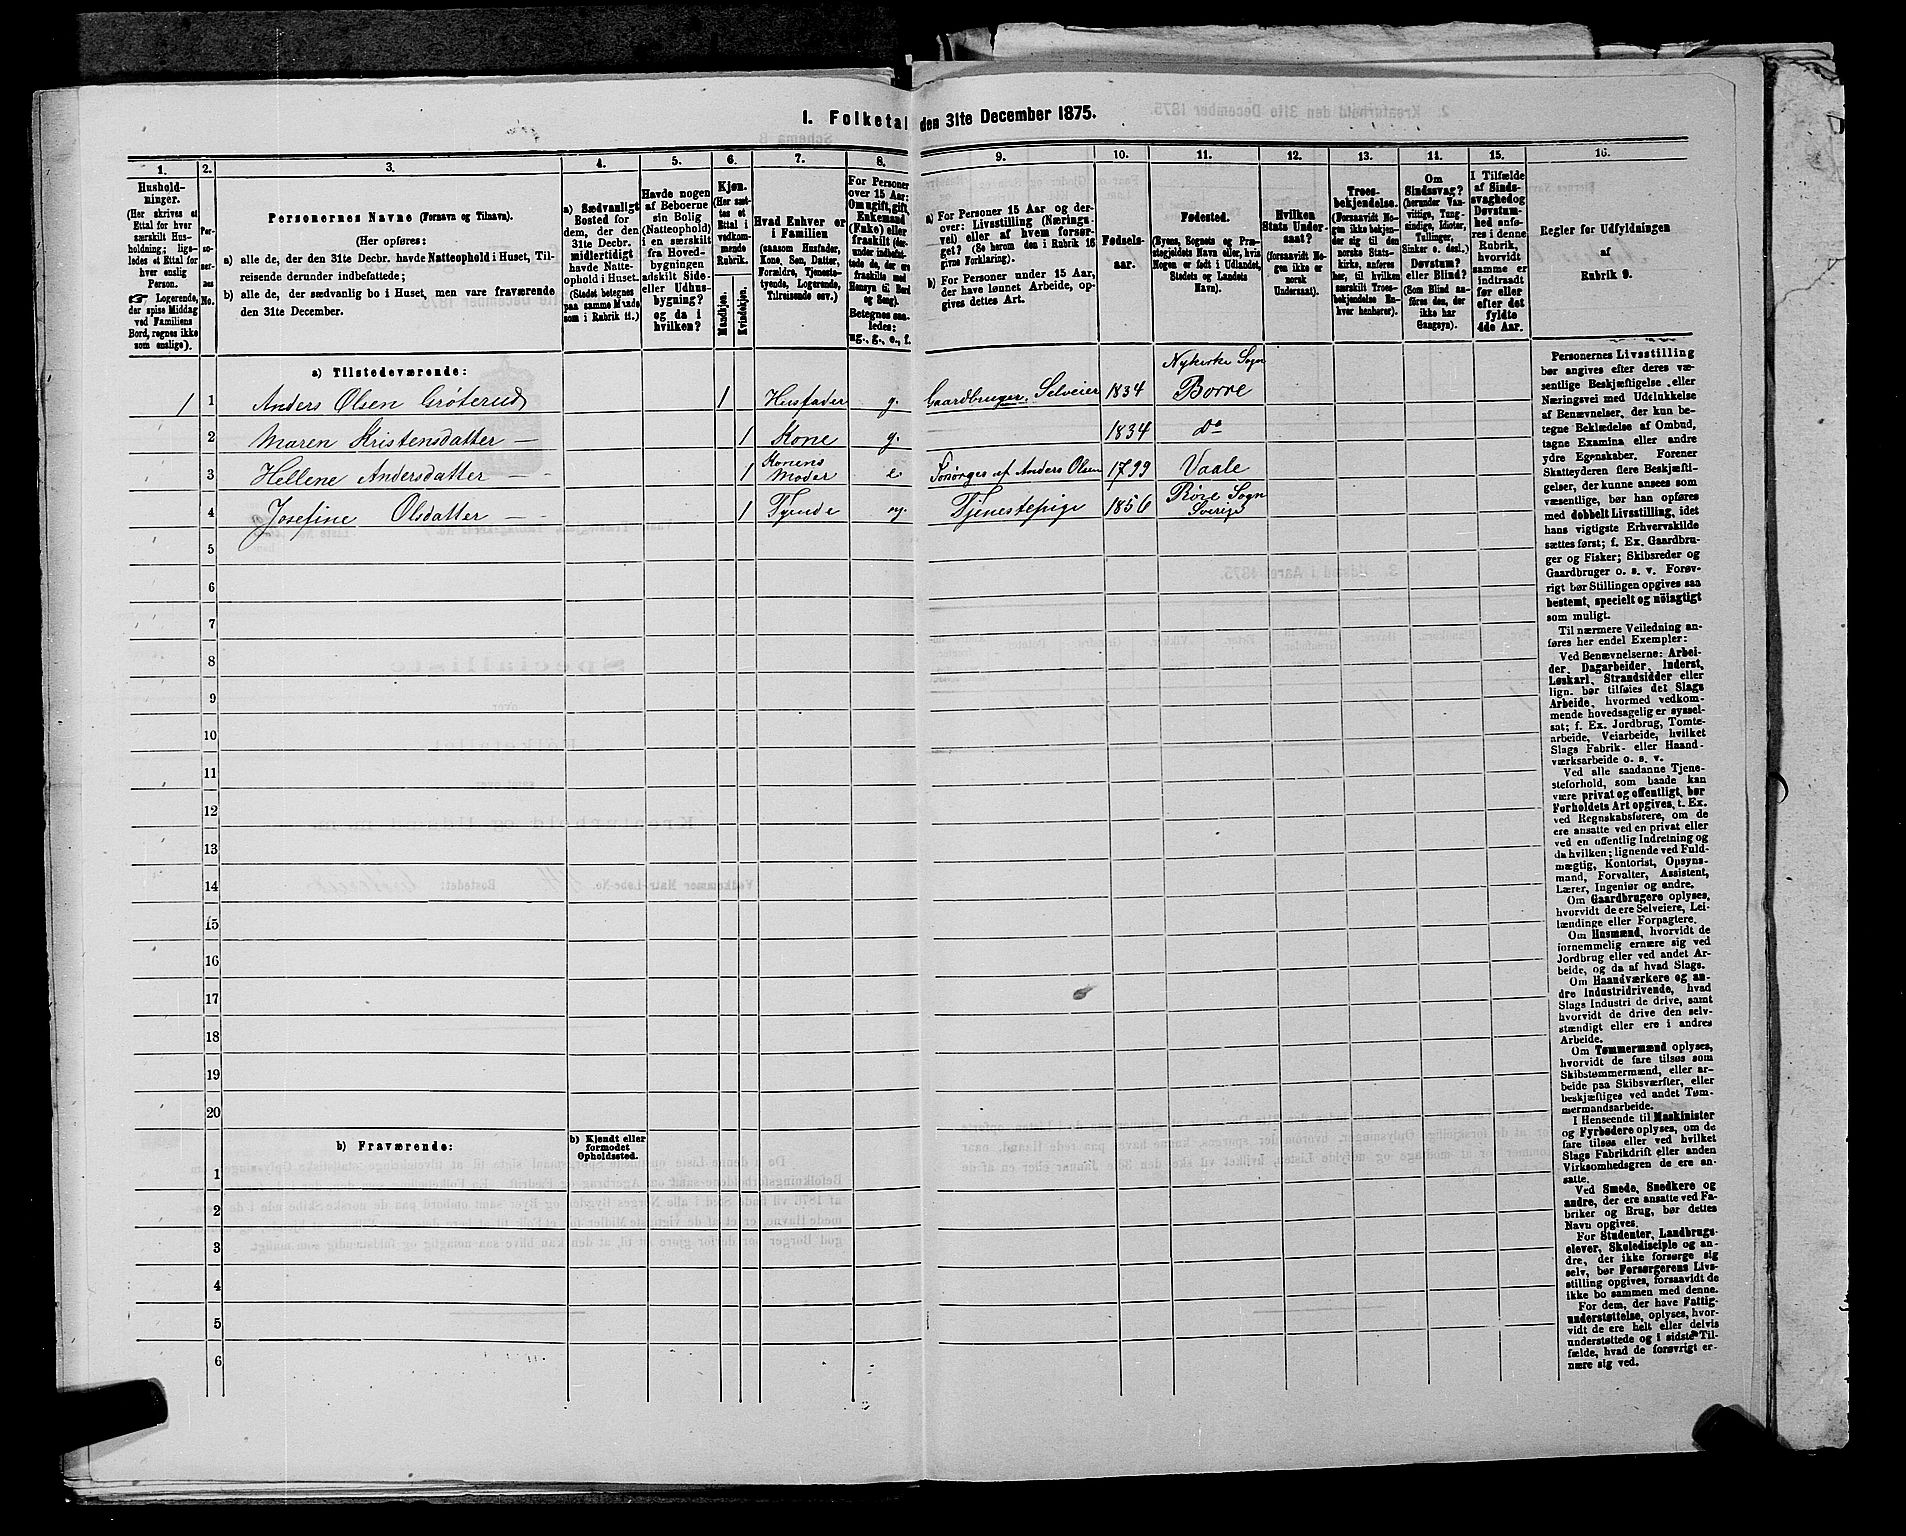 I. Folketal den 31te December 1875.
1.
2.
3.
4.
5.
6.
7.
8.
9.
10.
11.
12.
13.
14.
15.
16.
Hushold-
ninger.
(Her skrives et
Ettal for hver
særskilt Hus-
holdning; lige-
ledes et Ettal for
hver enslig
Person.
☞ Logerende,
der spise Middag
ved Familiens
Bord, regnes ikke
som enslige).
Per-
so-
ner-
nes
No.
Personernes Navne (Fornavn og Tilnavn).
(Her opføres:
a) alle de, der den 31te Decbr. havde Natteophold i Huset, Til-
reisende derunder indbefattede;
b) alle de, der sædvanlig bo i Huset, men vare fraværende
den 31te December.
a) Sædvanligt
Bosted for
dem, der den
31te Decbr.
midlertidigt
havde Natte-
ophold i Huset.
(Stedet betegnes
paa samme Maade
som i Rubrik 11.)
Havde nogen
af Beboerne
sin Bolig
(Natteophold)
i en særskilt
fra Hoved-
bygningen
adskilt Side-
eller Udhus-
bygning?
og da i
hvilken?
Kjøn.
(Her sæt-
tes et
Ettal i
vedkom-
mende
Rubrik.
Mandkjøn.
Kvindekjøn.
Hvad Enhver er
i Familien
(saasom Husfader,
Kone, Søn, Datter,
Forældre, Tjeneste-
tyende, Logerende,
Tilreisende osv.)
For Personer
over 15 Aar:
Om ugift, gift,
Enkemand
(Enke) eller
fraskilt
Betegnes saa-
ledes:
ug., g., e., f.
a) For Personer 15 Aar og der-
over: Livsstilling (Nærings-
vei) eller af hvem forsør-
get? (Se herom den i Rubrik 16
givne Forklaring).
b) For Personer under 15 Aar,
der have lønnet Arbeide, op-
gives dettes Art.
Fødsels-
aar.
Fødested.
(Byens, Sognets og Præ-
stegjeldets Navn eller, hvis
Nogen er født i Udlandet,
Stedets og Landets
Navn).
Hvilken
Stats Under-
saat?
(forsaavidt No-
gen ikke er
norsk
Undersaat).
Troes-
bekjendelse.
(Forsaavidt No-
gen ikke bekjen-
der sig til den
norske Stats-
kirke, anføres
her, til hvilken
særskilt Troes-
bekjendelse En-
hver henhører).
Om
Sindssvag?
(herunder Van-
vittige, Tung-
sindige, Idioter,
Tullinger,
Sinker o. desl.)
Døvstum?
eller Blind?
(Som Blind an-
føres den, der
ikke har
Gangsyn).
I Tilfælde
af Sinds-
svaghed og
Døvstum-
hed anfø-
res i denne
Rubrik,
hvorvidt
samme er
indtraadt
før eller
efter det
fyldte
4de Aar.
Regler for Udfyldningen
af
Rubrik 9.
a) Tilstedeværende:
1 1 Anders Olsen Grøterud 1 Husfader g. Gaardbruger. Selveier 1834 Nykirke Sogn Borre
2 Maren Kristensdatter — 1 Kone g. 1834 do
3 Hellene Andersdatter — 1 Konens Moder e Forsørges af Anders Olsen 1799 Vaale
4 Josefine Olsdatter — 1 Tyende ug. Tjenestepige 1856 Sogn Sverige
5
6
7
8
9
10
11
12
13
14
15
16
17
18
19
20
b) Fraværende:
b) Kjendt eller
formodet
Opholdssted.
1
2
3
4
5
6
Personernes Livsstilling
bør angives efter deres væ-
sentlige Beskjæftigelse eller
Næringsvei med Udelukkelse
af Benævnelser, der kun be-
tegne Beklædelse af Ombud,
tagne Examina eller andre
ydre Egenskaber. Forener
Skatteyderen flere Beskjæfti-
gelser, der kunne ansees som
væsentlige, bør han opføres
med dobbelt Livsstilling, idet
hans vigtigste Erhvervskilde
sættes først; f. Ex. Gaardbru-
ger og Fisker; Skibsreder og
Gaardbruger o. s. v. Forøv-
rigt bør Stillingen opgives saa
bestemt, specielt og nöiagtigt
som muligt.
Til nærmere Veiledning an-
føres her endel Exempler:
Ved Benævnelserne: Arbei-
der, Dagarbeider, Inderst,
Løskarl, Strandsidder eller
lign. bør tilføies det Slags
Arbeide, hvormed vedkom-
mende hovedsagelig er syssel-
sat; f. Ex. Jordbrug, Tomte-
arbeide, Veiarbeide, hvilket
Slags Fabrik- eller Haand-
værksarbeide o. s. v.
Ved alle saadanne Tjene-
steforhold, som baade kan
være privat og offentligt, bør
Forholdets Art opgives, t. Ex.
ved Regnskabsførere, om de
ere ansatte ved en privat eller
ved en offentlig Indretning og
da hvilken; lignende ved Fuld-
mægtig, Kontorist, Opsyns-
mand, Forvalter, Assistent,
Lærer, Ingeniør og andre.
Om Gaardbrugere oplyses,
hvorvidt de ere Selveiere, Lei-
lændinge eller Forpagtere.
Om Husmænd, hvorvidt de
fornemmelig ernære sig ved
Jordbrug eller ved andet Ar-
beide, og da af hvad Slags.
Om Haandværkere og an-
dre Industridrivende, hvad
Slags Industri de drive, samt
hvorvidt de drive den selv-
stændigt eller ere i andres
Arbeide.
Om Tømmermænd oplyses,
hvorvidt de fare tilsøs som
Skibstømmermænd, eller ar-
beide paa Skibsværfter, eller
beskjæftiges ved andet Tøm-
mermandsarbeide.
I Henseende til Maskinister
og Fyrbødere oplyses, om de
fare tilsøs eller ved hvilket
Slags Fabrikdrift eller anden
Virksomhedsgren de ere an-
satte.
Ved Smede, Snedkere og
andre, der ere ansatte ved Fa-
briker og Brug, bør dettes
Navn opgives.
For Studenter, Landbrugs-
elever, Skoledisciple og an-
dre, der ikke forsørge sig
selv, bør Forsørgerens Livs-
stilling opgives, forsaavidt de
ikke bo sammen med denne.
For dem, der have Fattig-
understøttelse, oplyses, hvor-
vidt de ere helt eller delvis
understøttede og i sidste Til-
fælde, hvad de forøvrigt er-
nære sig ved.